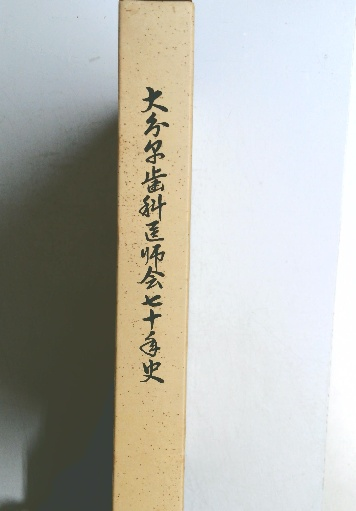 大分県歯科医師会七十年史